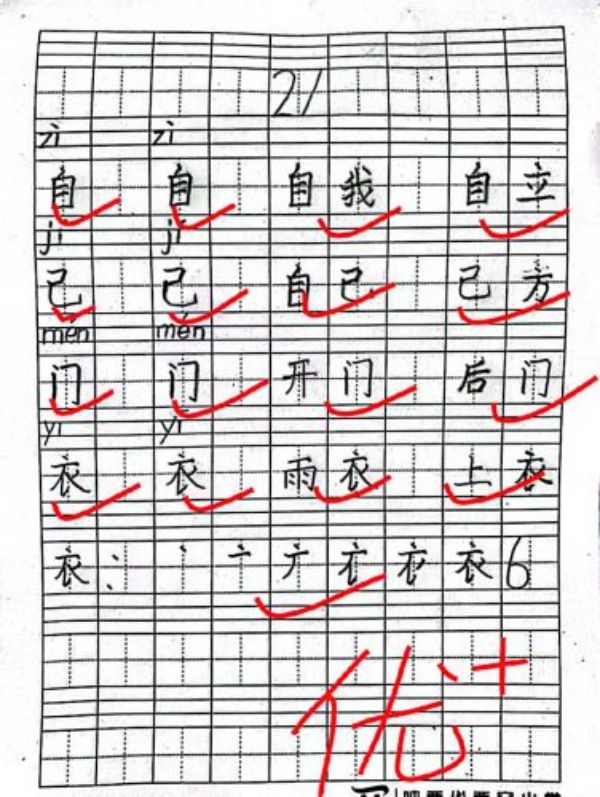 21
zì zì
自 自 自我 自立
jǐ jǐ
己 己 自己 己方
mén mén
门 门 开门 后门
yī yī
衣 衣 雨衣 上衣
衣: 丶 亠 衣 6
优+